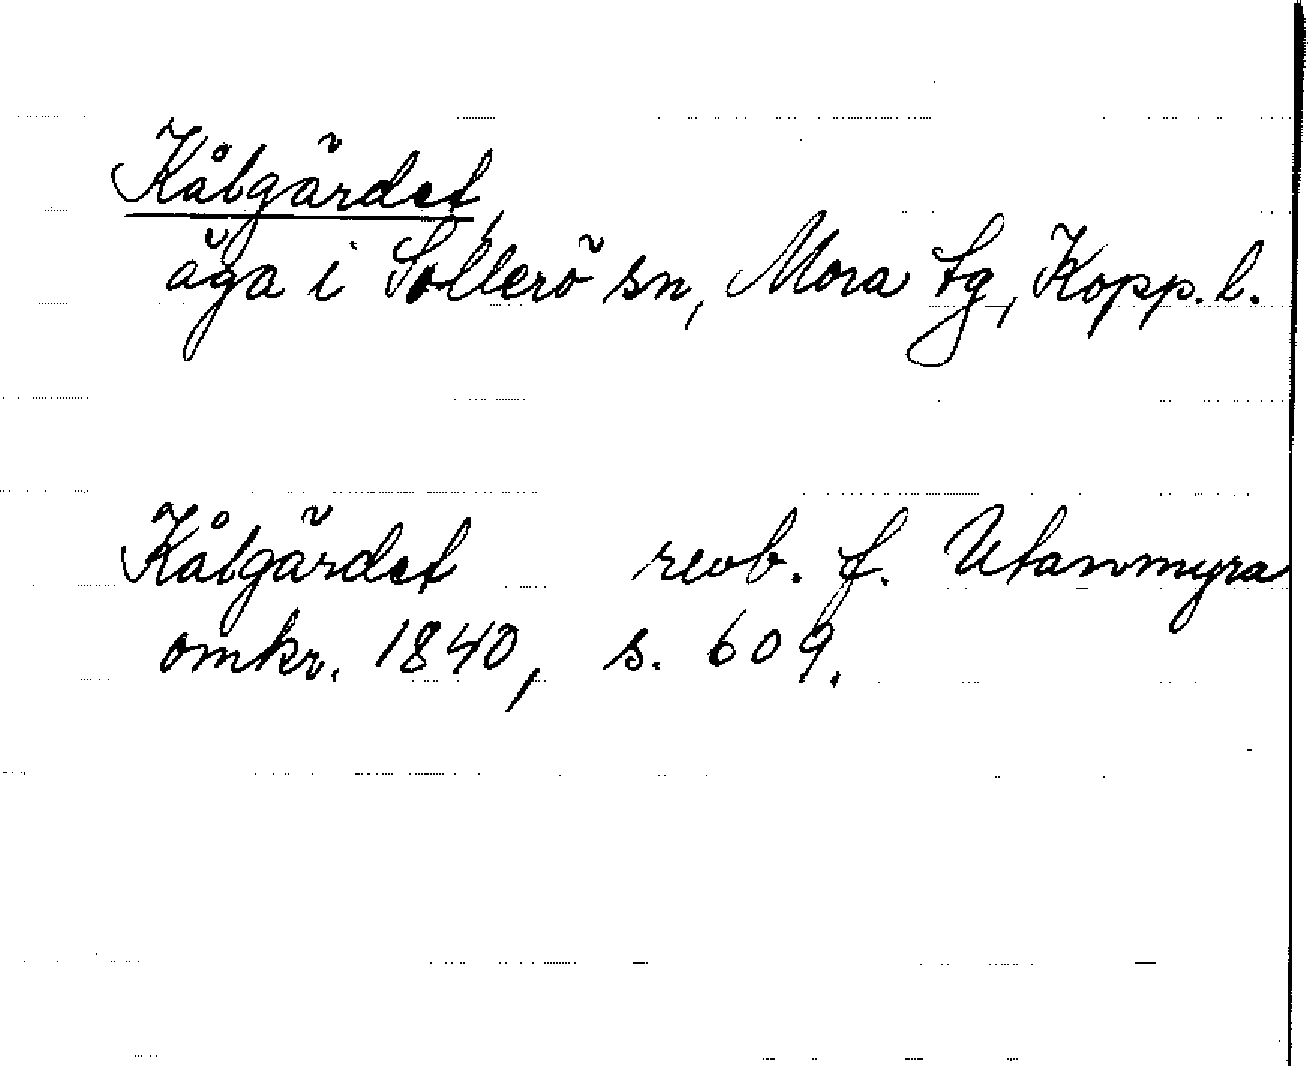 Kålgärdet,
äga i Sollerö sn, Mora tg, Kopp. l.
Kålgärdet revb. f. Utanmyra
omkr. 1840, s. 609.